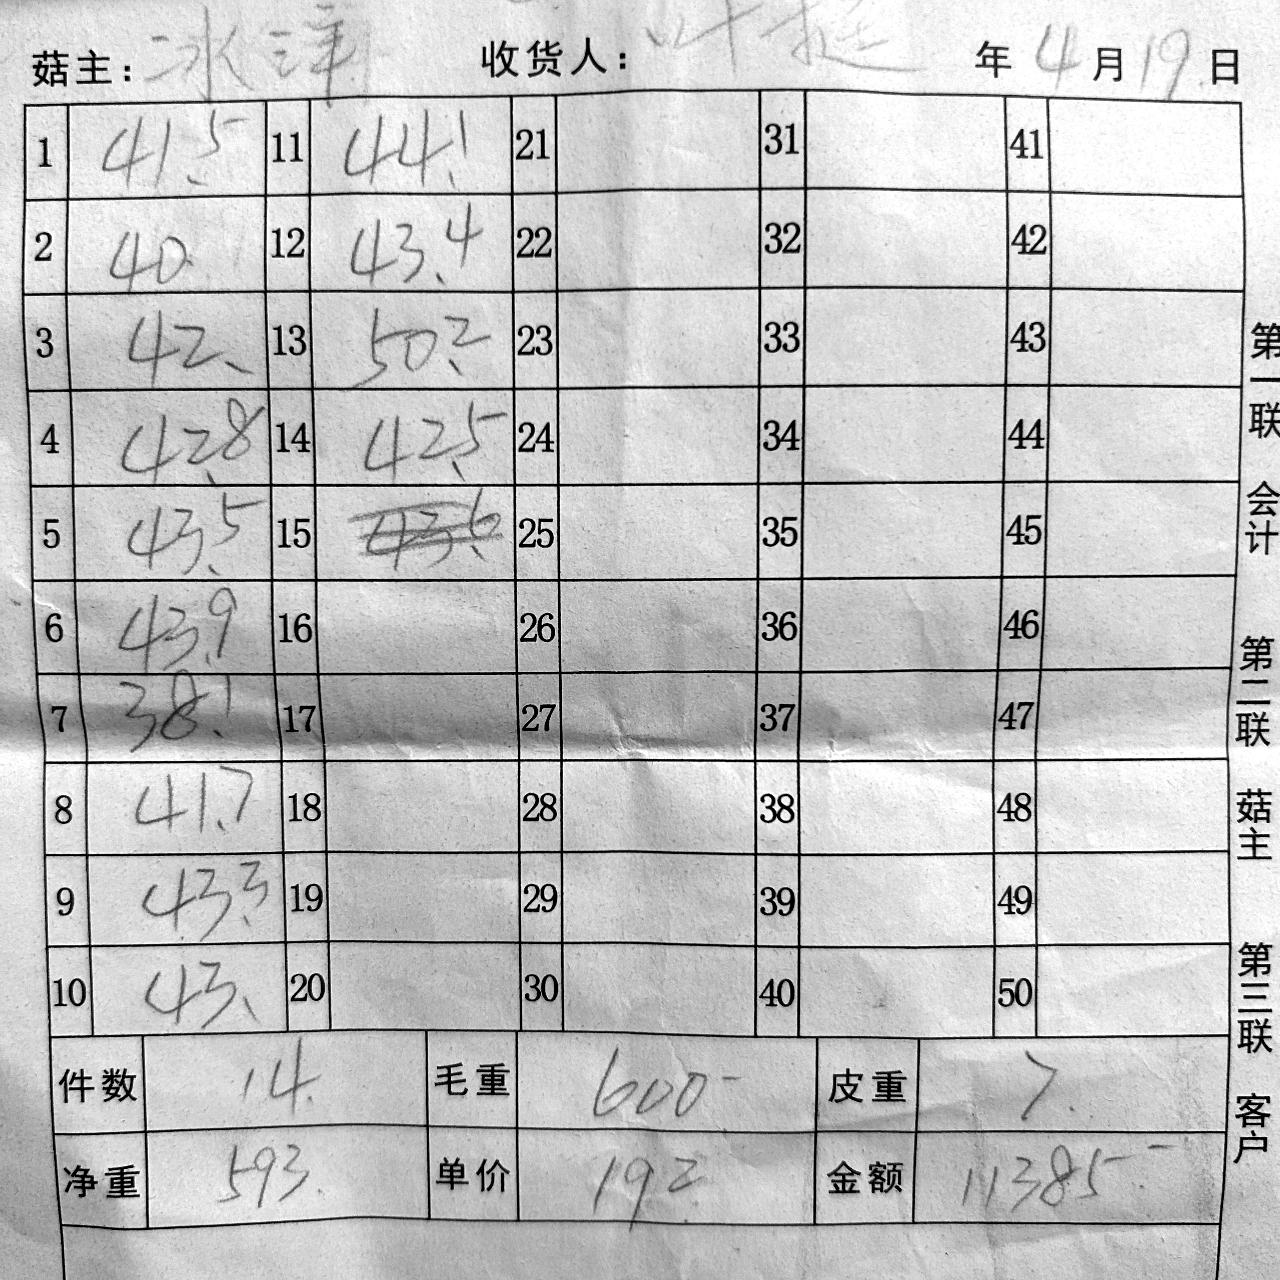 菇主： 冰洋 收货人： 叶挺 年 4 月 19 日
1 41.5 11 44.1 21 31 41
2 40. 12 43.4 22 32 42
3 42. 13 50.2 23 33 43
4 42.8 14 42.5 24 34 44
5 43.5 15 43.6 25 35 45
6 43.9 16 26 36 46
7 38.1 17 27 37 47
8 41.7 18 28 38 48
9 43.3 19 29 39 49
10 43. 20 30 40 50
件数 14. 毛重 600- 皮重 7.
净重 593. 单价 192 金额 11385-
第一联 会计 第二联 菇主 第三联 客户